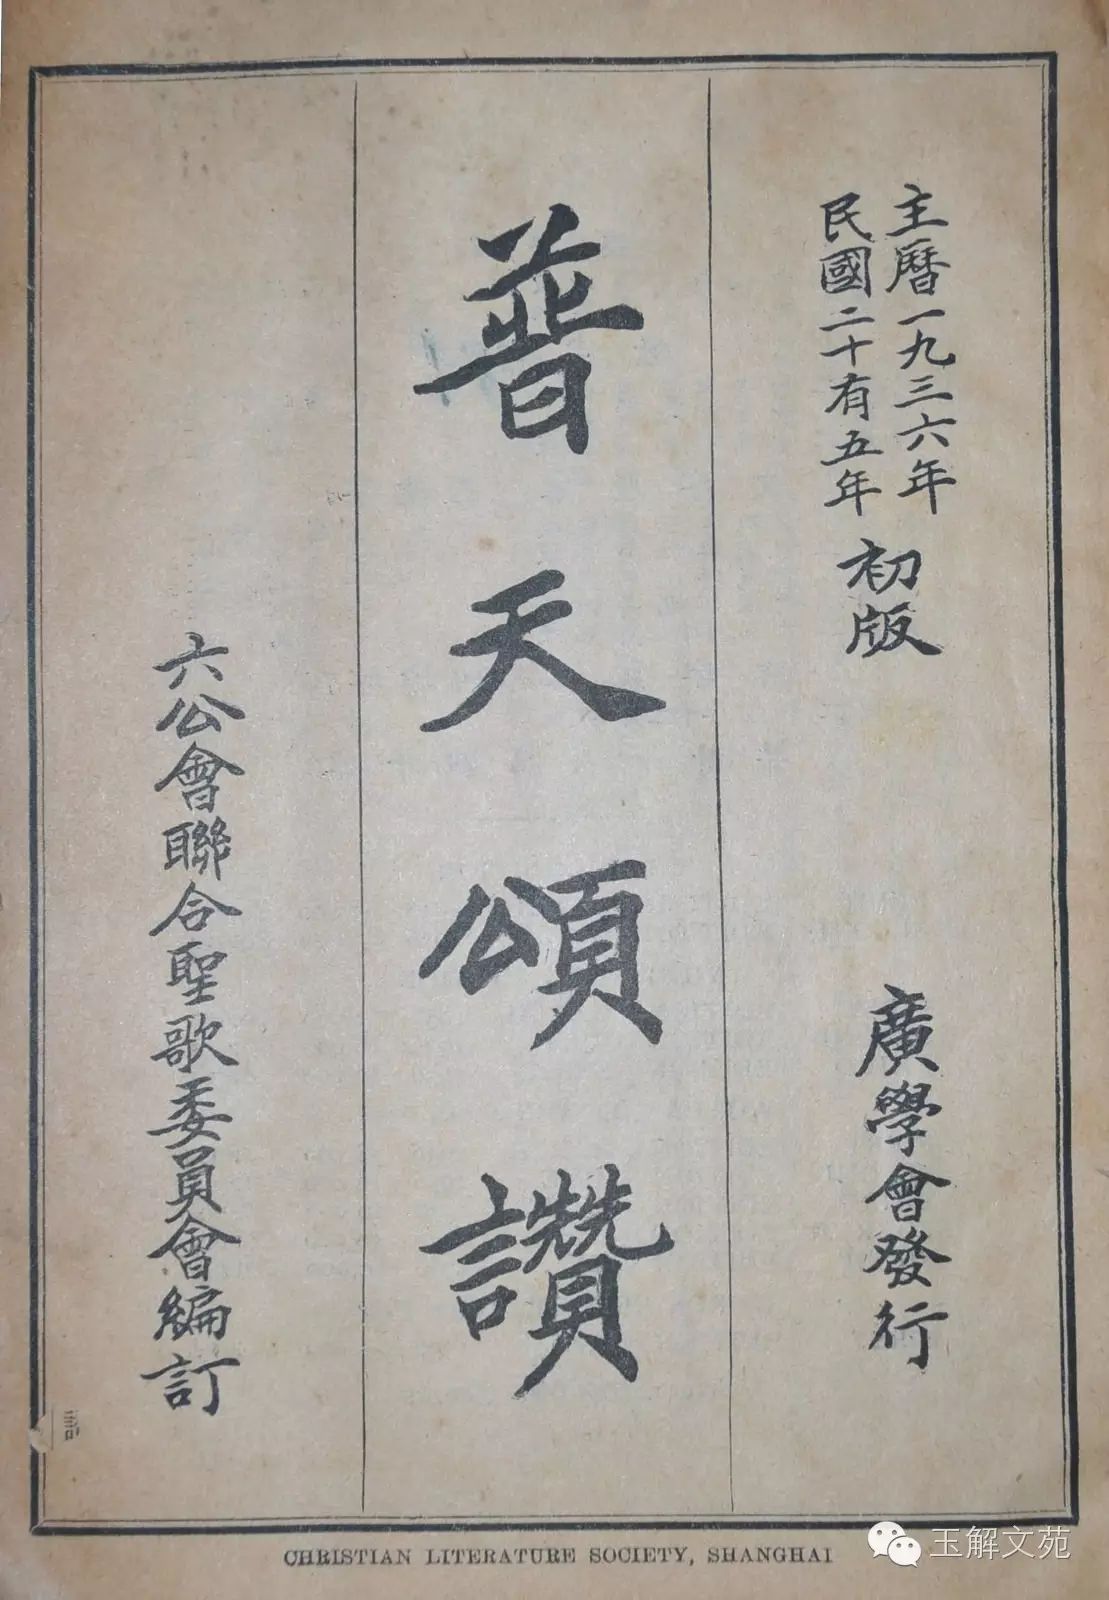 主曆一九三六年
民國二十有五年
初版
廣學會發行
普天頌讚
六公會聯合聖歌委員會編訂
CHRISTIAN LITERATURE SOCIETY, SHANGHAI
玉解文苑